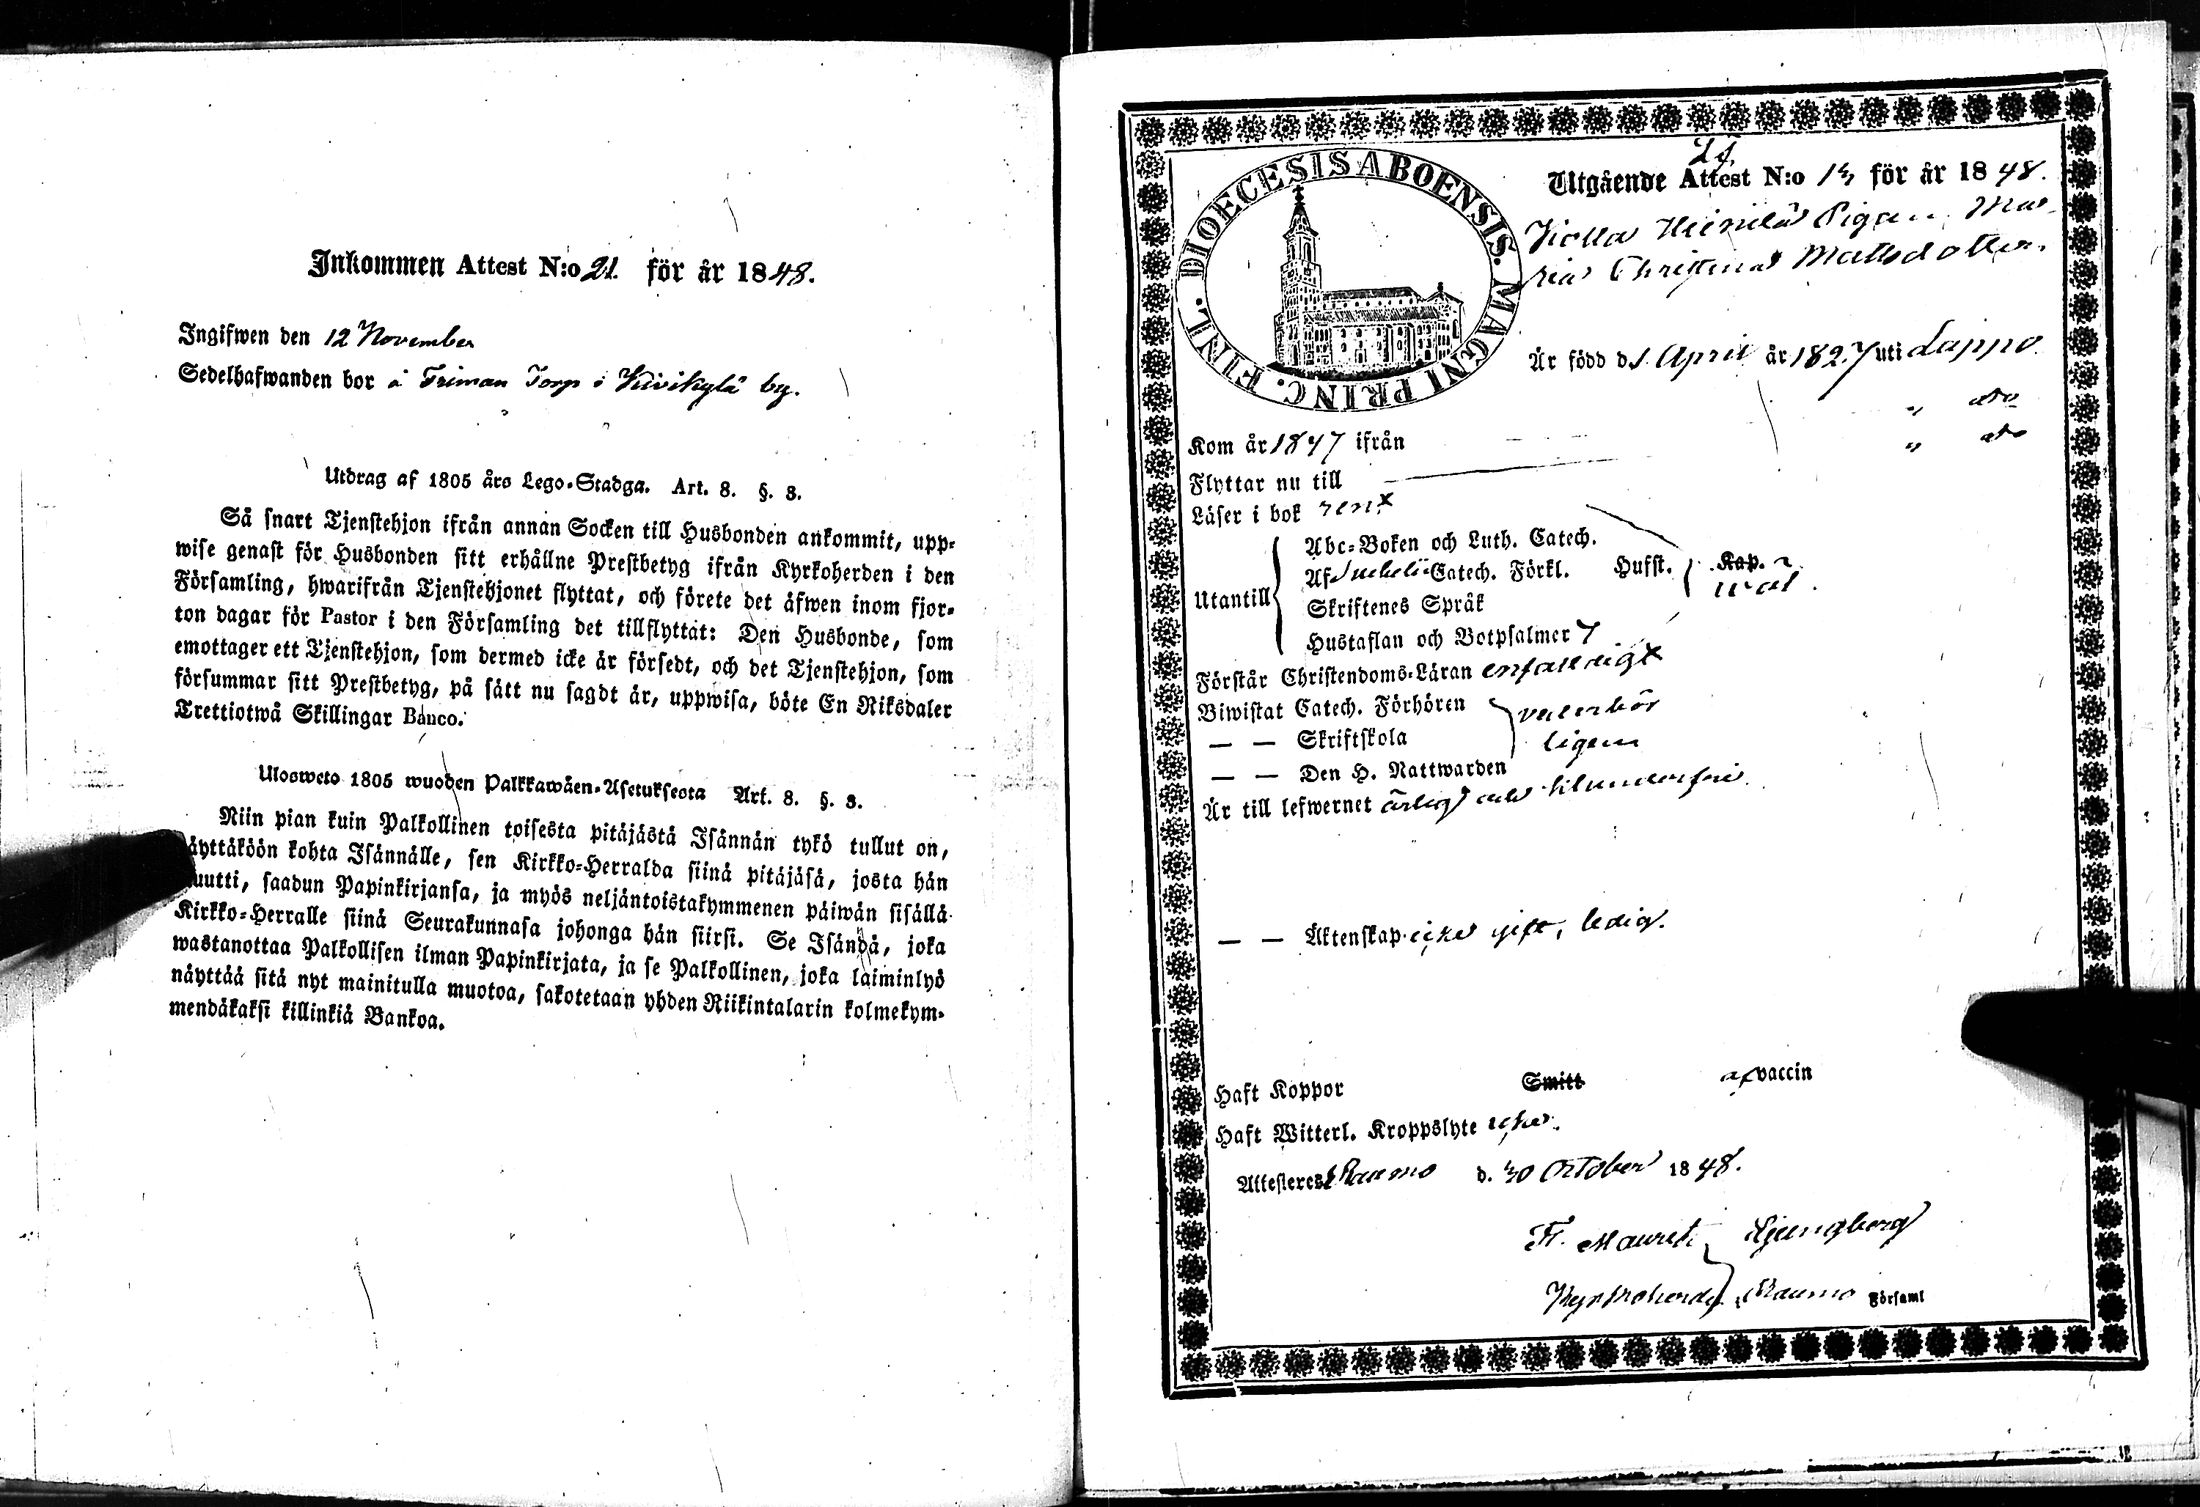 Inkommen Attest N:o 21. för år 1848.
Ingifwen den 12 November
Sedelhafwanden bor å Friman Torp i Kivikylä by.
Utdrag af 1805 års Lego-Stadga. Art. 8. §. 3.
Så snart Tjenstehjon ifrån annan Socken till Husbonden ankommit, upp-
wise genast för Husbonden sitt erhållne Prestbetyg ifrån Kyrkoherden i den
Församling, hwarifrån Tjenstehjonet flyttat, och förete det äfwen inom fjor-
ton dagar för Pastor i den Församling det tillflyttat: Den Husbonde, som
emottager ett Tjenstehjon, som dermed icke är försedt, och det Tjenstehjon, som
försummar sitt Prestbetyg, på sätt nu sagdt är, uppwisa, böte En Riksdaler
Trettiotwå Skillingar Banco.
Ulosweto 1805 wuoden Palkkawäen-Asetuksesta Art. 8. §. 3.
Niin pian kuin Palkollinen toisesta pitäjästä Isännän tykö tullut on,
äyttäköön kohta Isännälle, sen Kirkko-Herralda siinä pitäjäsä, josta hän
uutti, saadun Papinkirjansa, ja myös neljäntoistakymmenen päiwän sisällä
Kirkko-Herralle siinä Seurakunnasa johonga hän siirsi. Se Isändä, joka
wastanottaa Palkollisen ilman Papinkirjata, ja se Palkollinen, joka laiminlyö
näyttää sitä nyt mainitulla muotoa, sakotetaan yhden Riikintalarin kolmekym-
mendäkaksi killinkiä Bankoa.
DIOECESIS ABOENSIS. MAGNI PRINC. FINL.
21.
Utgående Attest N:o 13 för år 1848.
Pigan Ma-
ria Christina Mattsdotter.
Är född d. 1 April år 1827 uti Lappo
Kom år 1847 ifrån " dto
Flyttar nu till " dto
Läser i bok rent
Utantill
Abc-Boken och Luth. Catech.
Af Svebelii Catech. Förkl. Husst. Kap.
Skriftenes Språk wäl.
Hustaflan och Botpsalmer 7
Förstår Christendoms-Läran enfaldigt
Biwistat Catech. Förhören vederbör
— — Skriftskola ligen
— — Den H. Nattwarden
Är till lefwernet ärlig och
— — Äktenskap icke gift, ledig.
Haft Koppor Smitt af vaccin
Haft Witterl. Kroppslyte icke.
Attesteres Raumo d. 30 October 1848.
Fr. Maurit. Ljungberg
Kyrkoherde i Raumo Församl